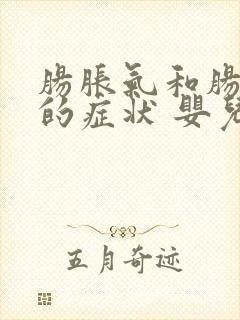 腸脹氣和腸
的症状 嬰兒
五月奇迹